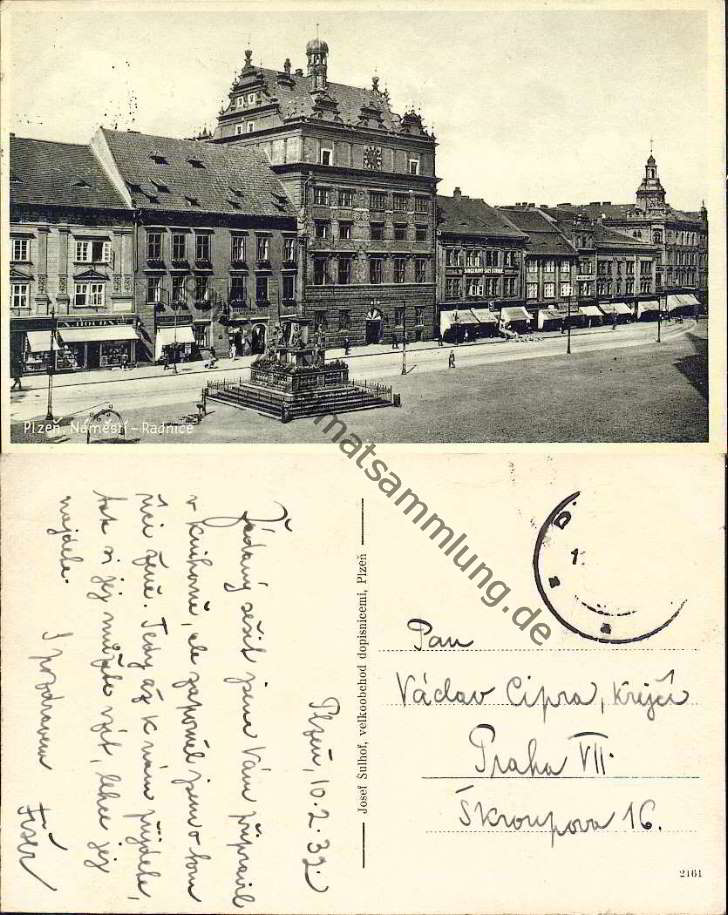 Plzeň, Náměstí – Radnice
Plzeň, 10.2.39.
Žádaný sešit jsem Vám připravil
v knihovně, ale zapoměl jsem o tom
říci ženě. Tedy až k nám přijdete,
tak si jej můžete vzít, lehce jej
najdete.
S pozdravem
Fišer
Josef Šulhof, velkoobchod dopisnicemi, Plzeň
Pan
Václav Cipra, krejčí
Praha VII.
Škroupova 16.
2161
matsammlung.de